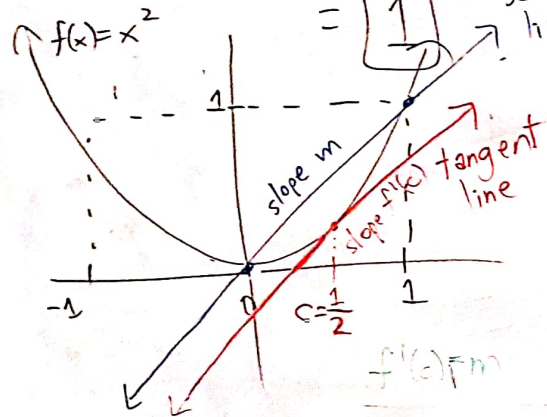 f(x)=x²
= 1
1
slope m
slope f'(c)
tangent
line
-1
0
c=1/2
1
f'(c)=m